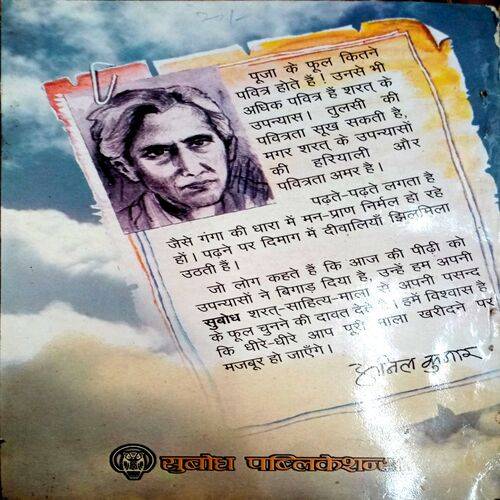 पूजा के फूल कितने
पवित्र होते हैं ! उनसे भी
अधिक पवित्र हैं शरत् के
उपन्यास। तुलसी की
पवित्रता सूख सकती है,
मगर शरत् के उपन्यासों
की हरियाली और
पवित्रता अमर है।
पढ़ते-पढ़ते लगता है
जैसे गंगा की धारा में मन-प्राण निर्मल हो रहे
हों। पढ़ने पर दिमाग में दीवालियाँ झिलमिला
उठती हैं।
जो लोग कहते हैं कि आज की पीढ़ी को
उपन्यासों ने बिगाड़ दिया है, उन्हें हम अपनी
सुबोध शरत्-साहित्य-माला से अपनी पसन्द
के फूल चुनने की दावत देते हैं। हमें विश्वास है
कि धीरे-धीरे आप पूरी माला खरीदने पर
मजबूर हो जाएँगे।
कुमार
सुबोध पब्लिकेशन्स